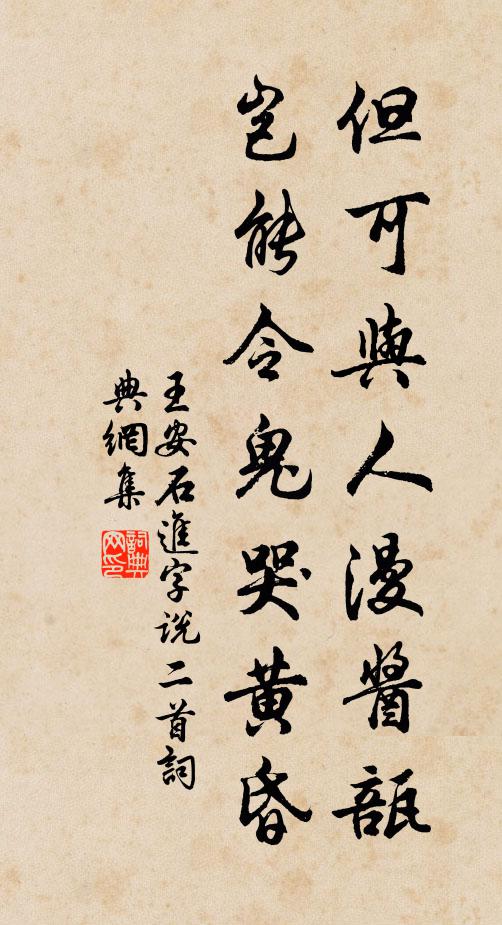 但可與人漫醬瓿
豈能令鬼哭黃昏
王安石進字說二首詞
典網集
詞典
网印